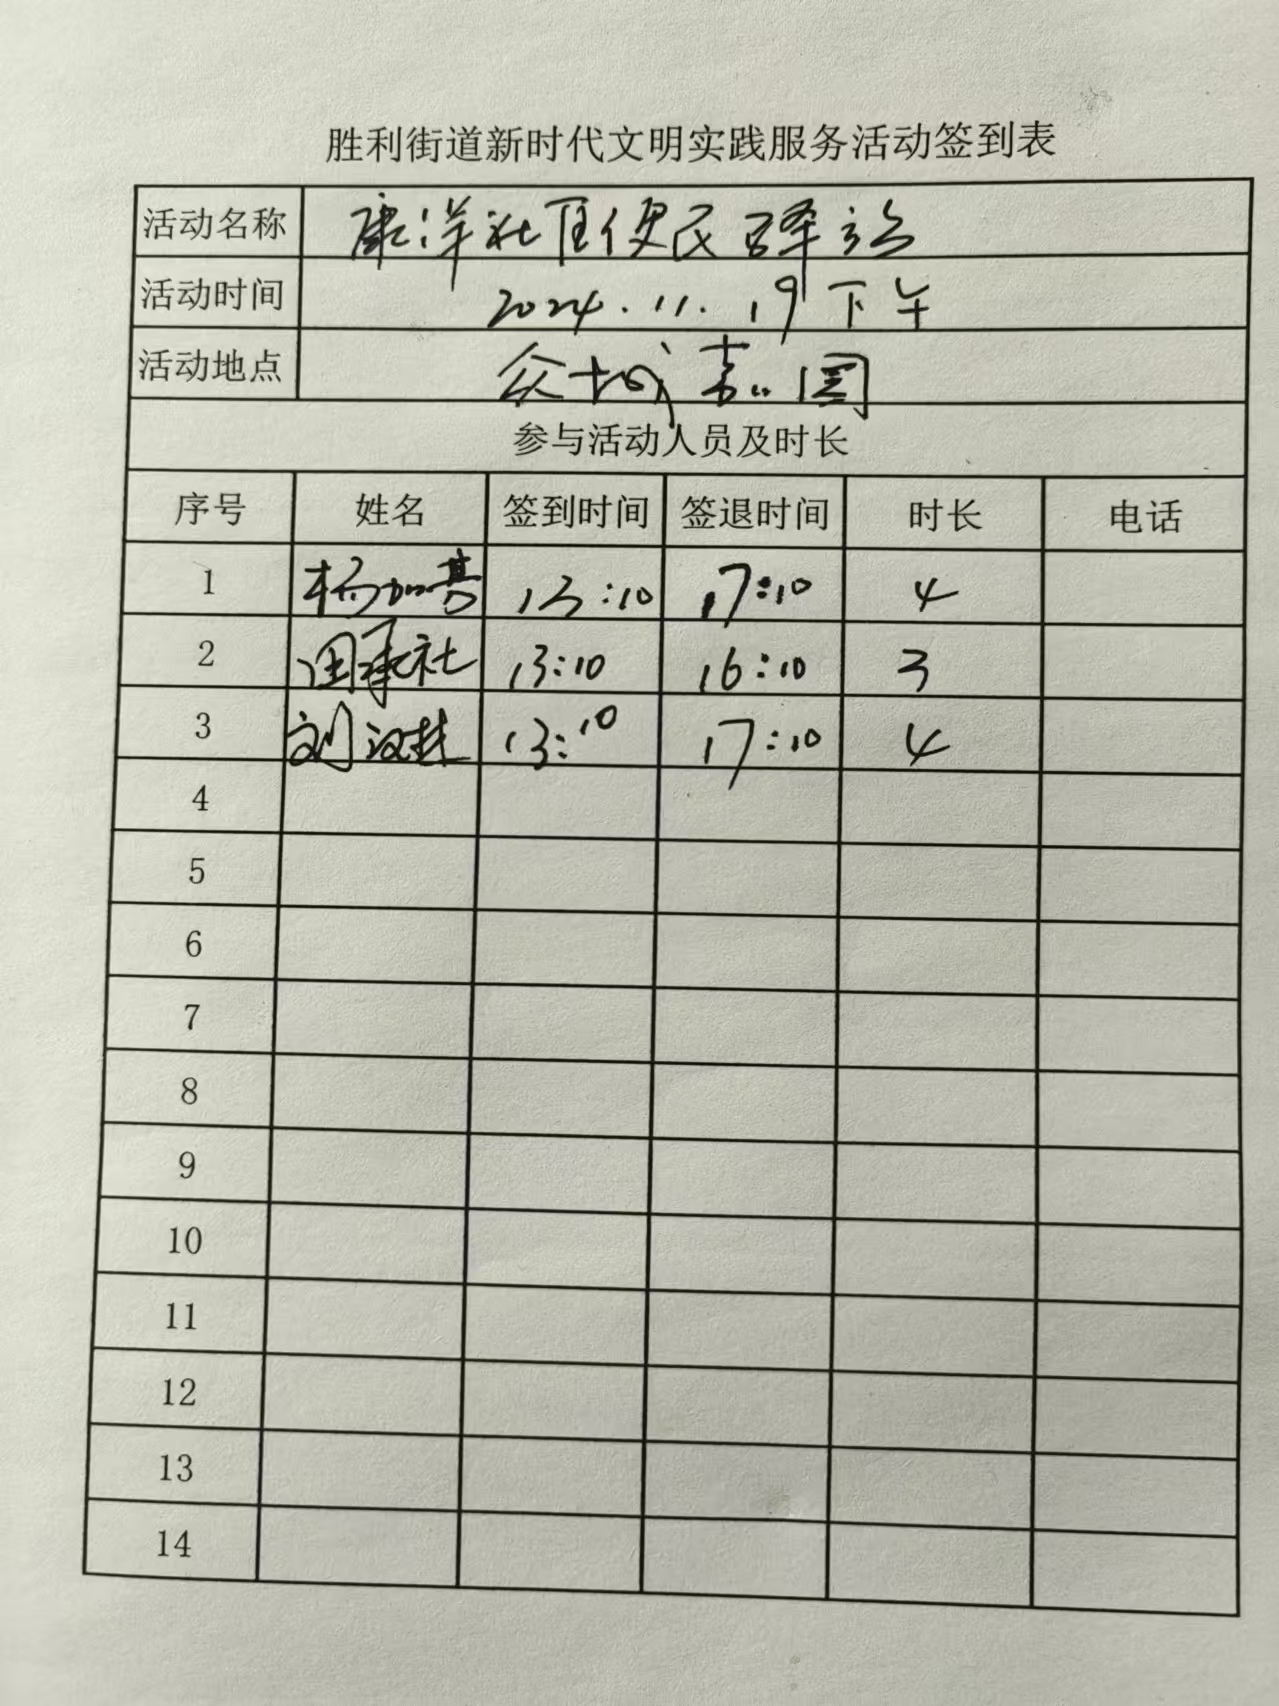 胜利街道新时代文明实践服务活动签到表
活动名称 康洋社区便民驿站
活动时间 2024.11.19下午
活动地点 众城嘉园
参与活动人员及时长
序号 姓名 签到时间 签退时间 时长 电话
1 13:10 17:10 4
2 周承社 13:10 16:10 3
3 刘汉林 13:10 17:10 4
4
5
6
7
8
9
10
11
12
13
14